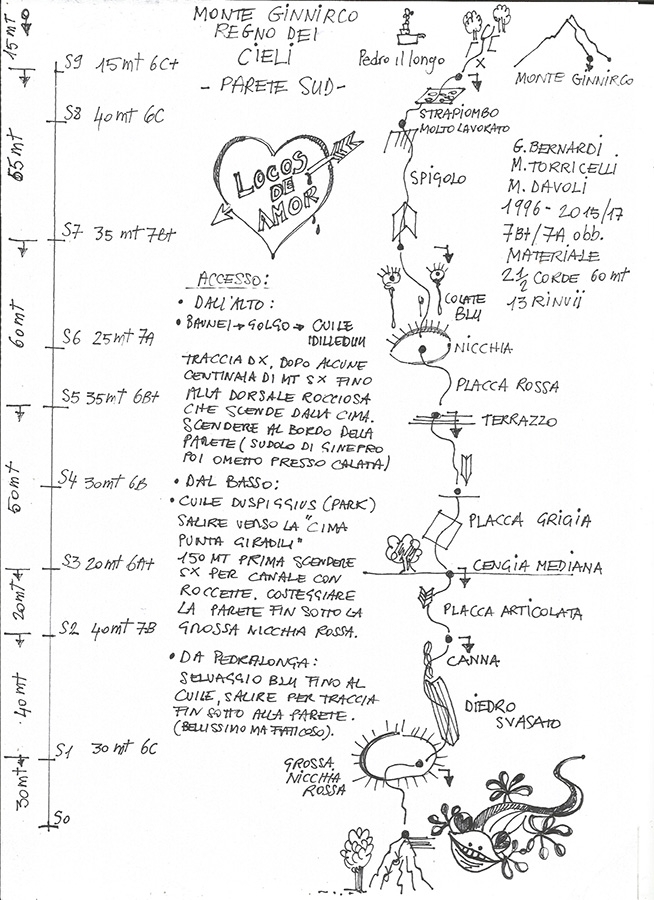 MONTE GINNIRCO
REGNO DEI
CIELI
- PARETE SUD -
Pedro il longo
MONTE GINNIRCO
15 mt
55 mt
60 mt
50 mt
20 mt
40 mt
30 mt
S9 15 mt 6C+
S8 40 mt 6C
S7 35 mt 7B+
S6 25 mt 7A
S5 35 mt 6B+
S4 30 mt 6B
S3 20 mt 6A+
S2 40 mt 7B
S1 30 mt 6C
S0
LOCOS
DE
AMOR
ACCESSO:
• DALL'ALTO:
• BAUNEI → GOLGO → CUILE
IDILLEDDU
TRACCIA DX, DOPO ALCUNE
CENTINAIA DI MT SX FINO
ALLA DORSALE ROCCIOSA
CHE SCENDE DALLA CIMA.
SCENDERE AL BORDO DELLA
PARETE (SUDOLO DI GINEPRO
POI OMETTO PRESSO CALATA)
• DAL BASSO:
• CUILE DUSPIGGIUS (PARK)
SALIRE VERSO LA "CIMA
PUNTA GIRADILI"
150 MT PRIMA SCENDERE
SX PER CANALE CON
ROCCETTE. COSTEGGIARE
LA PARETE FIN SOTTO LA
GROSSA NICCHIA ROSSA.
• DA PEDRALONGA:
SELVAGGIO BLU FINO AL
CUILE, SALIRE PER TRACCIA
FIN SOTTO ALLA PARETE.
(BELLISSIMO MA FATICOSO).
X
STRAPIOMBO
MOLTO LAVORATO
SPIGOLO
COLATE
BLU
NICCHIA
PLACCA ROSSA
TERRAZZO
PLACCA GRIGIA
CENGIA MEDIANA
PLACCA ARTICOLATA
CANNA
DIEDRO
SVASATO
GROSSA
NICCHIA
ROSSA
G. BERNARDI
M. TORRICELLI
M. DAVOLI
1996 - 2015/17
7B+/7A obb.
MATERIALE
2 1/2 CORDE 60 mt
13 RINVII